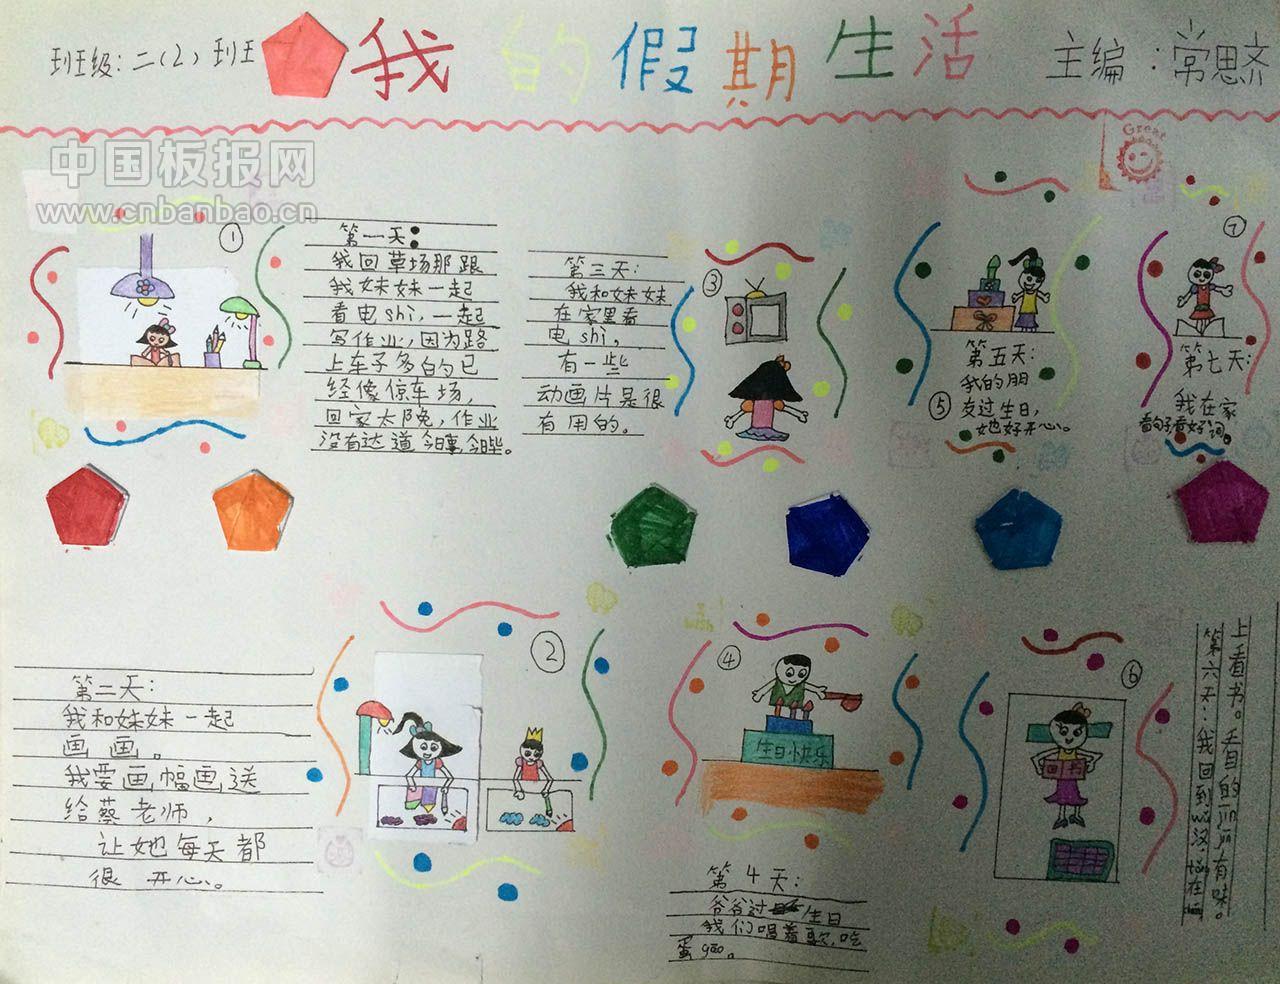 班级:二(2)班
我的假期生活
主编:常思齐
中国板报网
www.cnbanbao.cn
Great
①
第一天:
我回草场那跟
我妹妹一起
看电shi,一起
写作业,因为路
上车子多的已
经像停车场,
回家太晚,作业
没有达道今日事,今日毕。
第三天:
我和妹妹
在家里看
电shi,
有一些
动画片是很
有用的。
③
第五天:
我的朋
⑤友过生日,
她好开心。
⑦
第七天:
我在家
看句子看好词。
第二天:
我和妹妹一起
画画。
我要画幅画送
给蔡老师,
让她每天都
很开心。
②
④
生日快乐
第4天:
爷爷过生日
我们唱着歌,吃
蛋gao。
⑥
看书
第六天:我回到wu汉站在
上看书。看的jin jin有味。